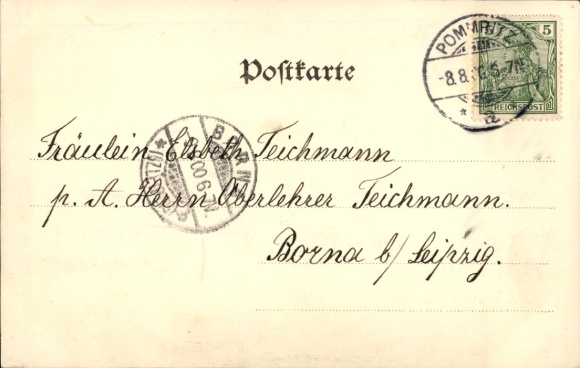 POMMRITZ
-8.8.00.5-7N.
5
REICHSPOST
Postkarte
BORNA
00.6-7
Fräulein Elsbeth Teichmann
p. A. Herrn Oberlehrer Teichmann.
Borna b/ Leipzig.